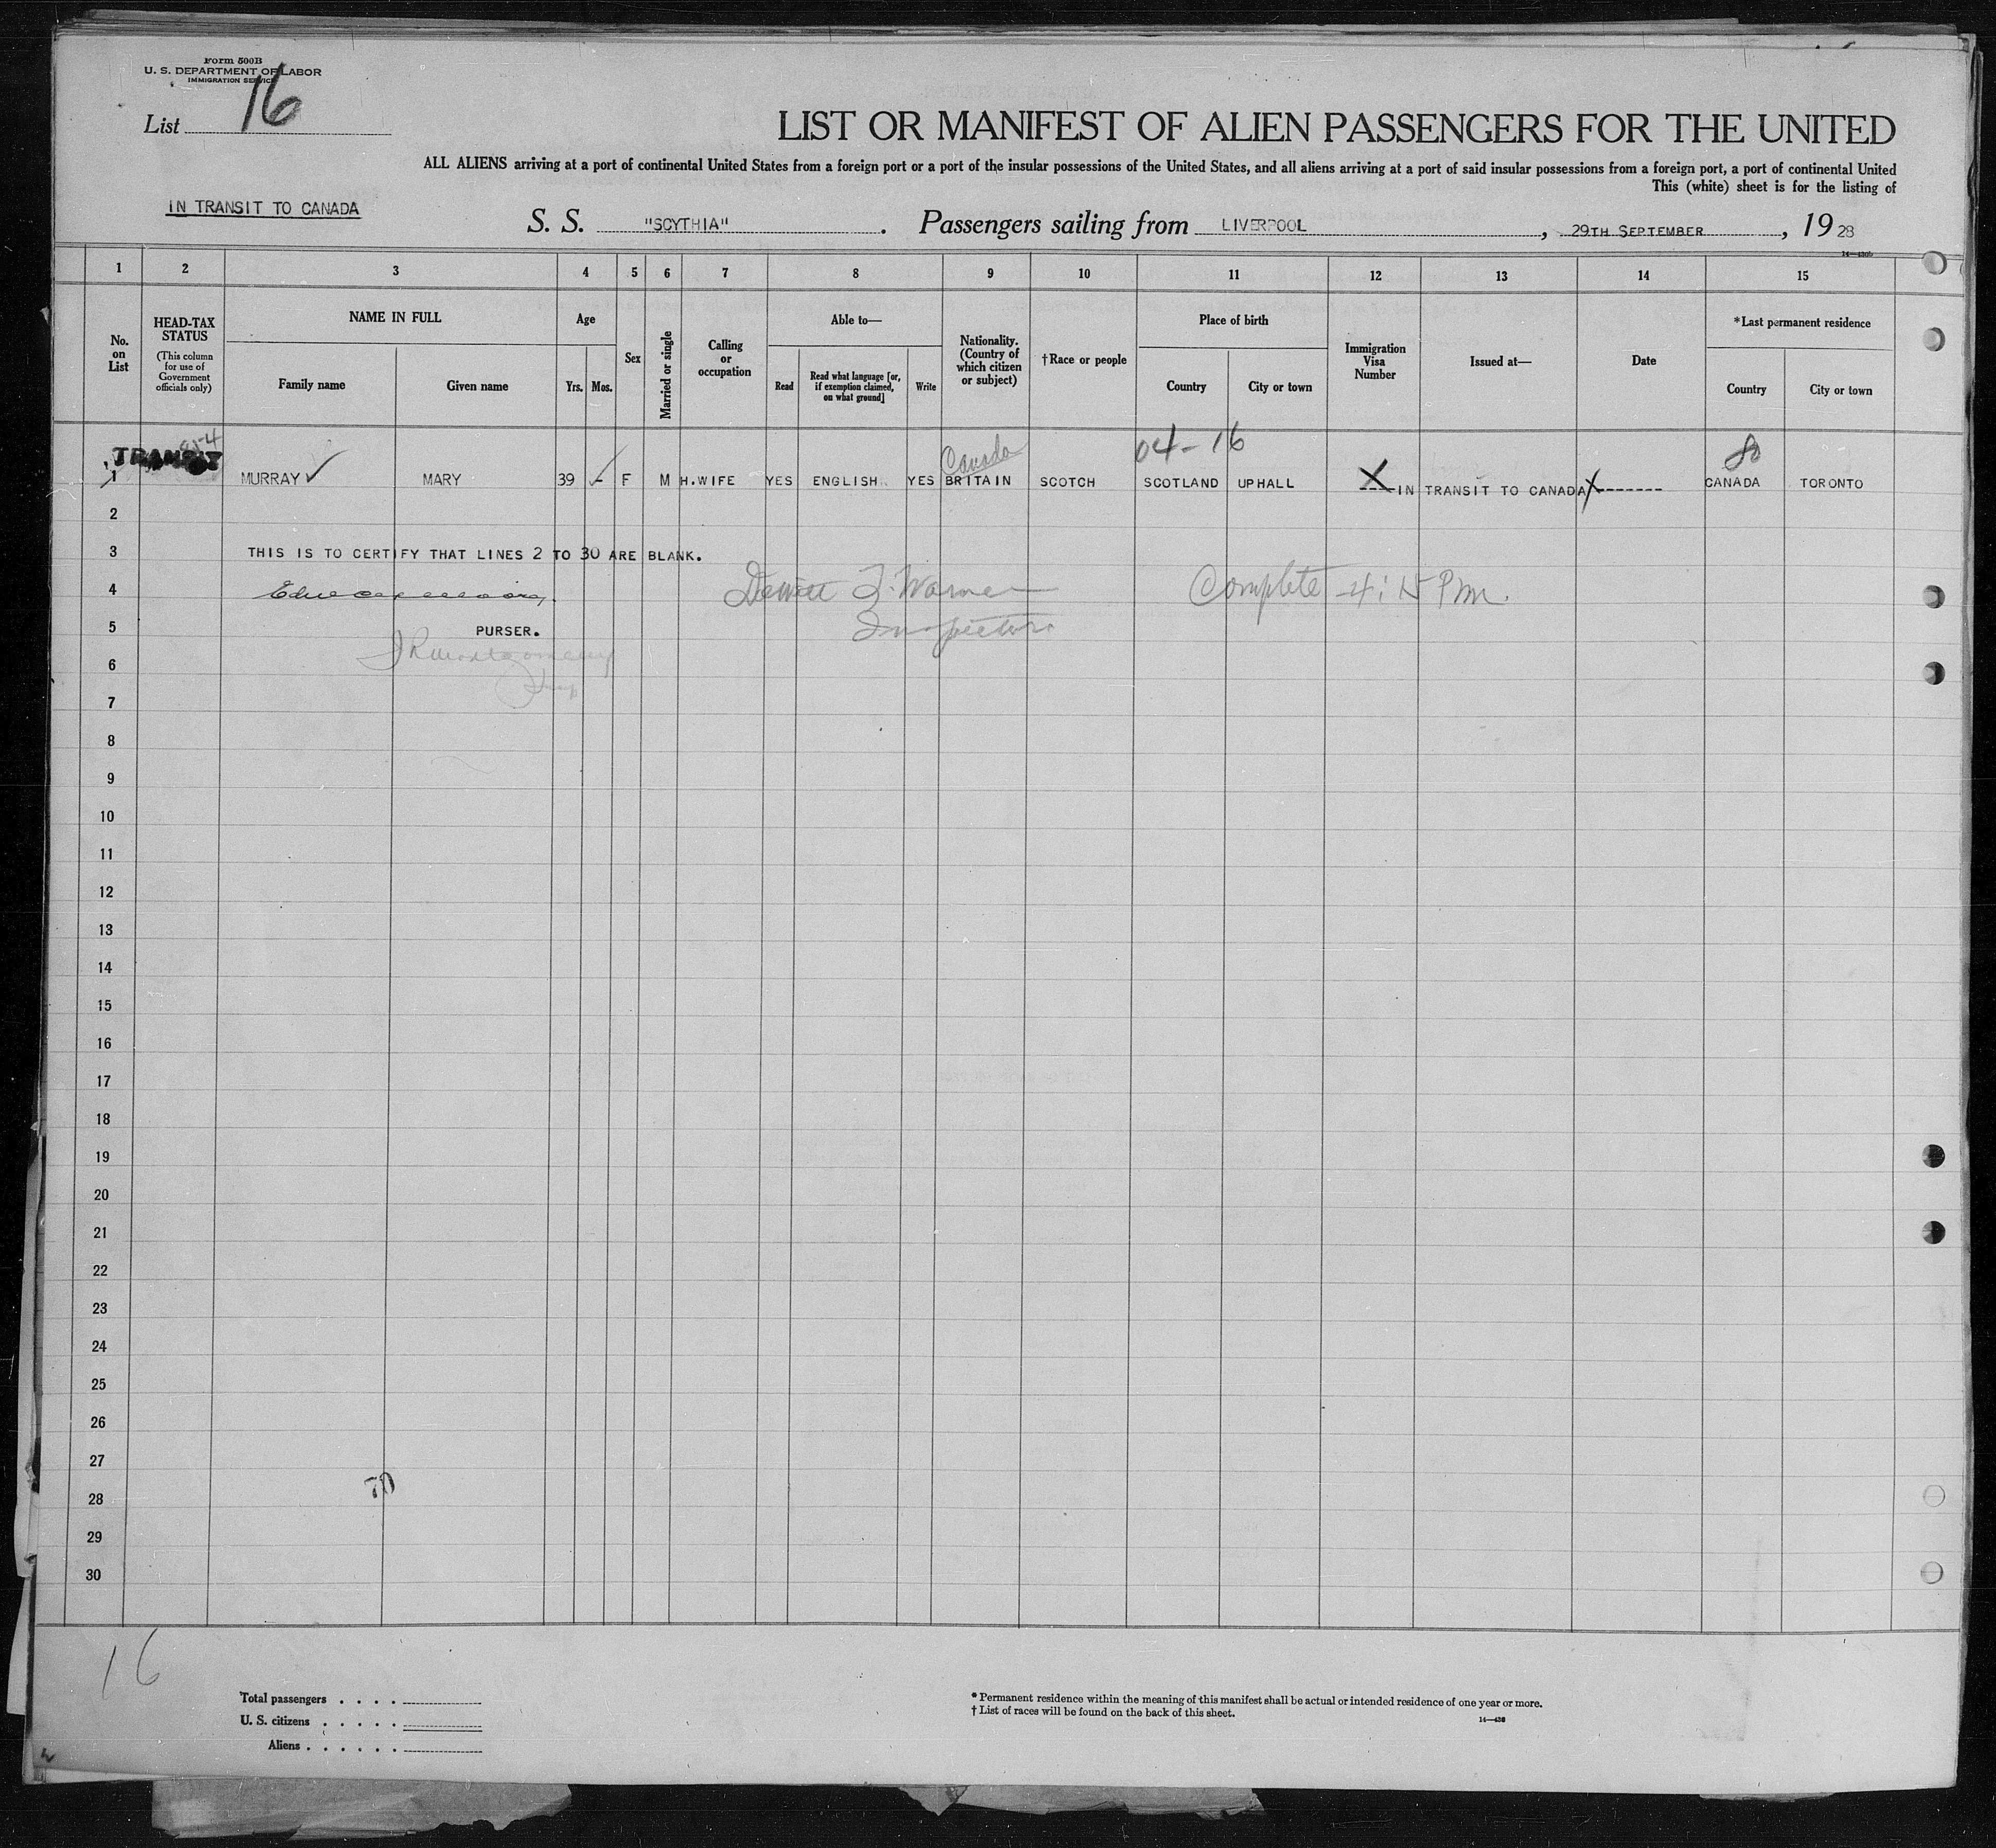 Form 500B
U. S. DEPARTMENT OF LABOR
IMMIGRATION SERVICE
List 16
LIST OR MANIFEST OF ALIEN PASSENGERS FOR THE UNITED
ALL ALIENS arriving at a port of continental United States from a foreign port or a port of the insular possessions of the United States, and all aliens arriving at a port of said insular possessions from a foreign port, a port of continental United
This (white) sheet is for the listing of
IN TRANSIT TO CANADA
S. S. "SCYTHIA". Passengers sailing from LIVERPOOL, 29TH SEPTEMBER, 1928
1 2 3 4 5 6 7 8 9 10 11 12 13 14 15
No. on List
HEAD-TAX STATUS
(This column for use of Government officials only)
NAME IN FULL
Family name
Given name
Age
Yrs.
Mos.
Sex
Married or single
Calling or occupation
Able to—
Read
Read what language [or, if exemption claimed, on what ground]
Write
Nationality. (Country of which citizen or subject)
†Race or people
Place of birth
Country
City or town
Immigration Visa Number
Issued at—
Date
*Last permanent residence
Country
City or town
TRANSIT
Canada
04-16
80
1 MURRAY ✓ MARY 39 - F M H.WIFE YES ENGLISH YES BRITAIN SCOTCH SCOTLAND UPHALL X ----IN TRANSIT TO CANADA X------- CANADA TORONTO
2
3 THIS IS TO CERTIFY THAT LINES 2 TO 30 ARE BLANK.
4 Dewitt F. Warner Complete 4:15 Pm.
5 PURSER. Inspector
JR Montgomery
6
Insp
7
8
9
10
11
12
13
14
15
16
17
18
19
20
21
22
23
24
25
26
27
70
28
29
30
16
Total passengers . . . .
U. S. citizens . . . . .
Aliens . . . . . .
* Permanent residence within the meaning of this manifest shall be actual or intended residence of one year or more.
† List of races will be found on the back of this sheet.
14—430